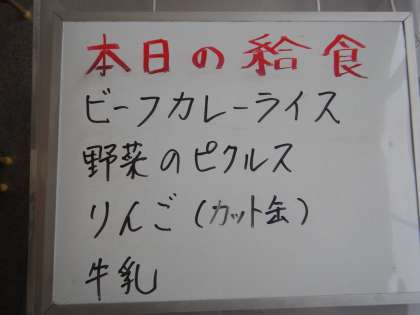 本日の給食
ビーフカレーライス
野菜のピクルス
りんご(カット缶)
牛乳